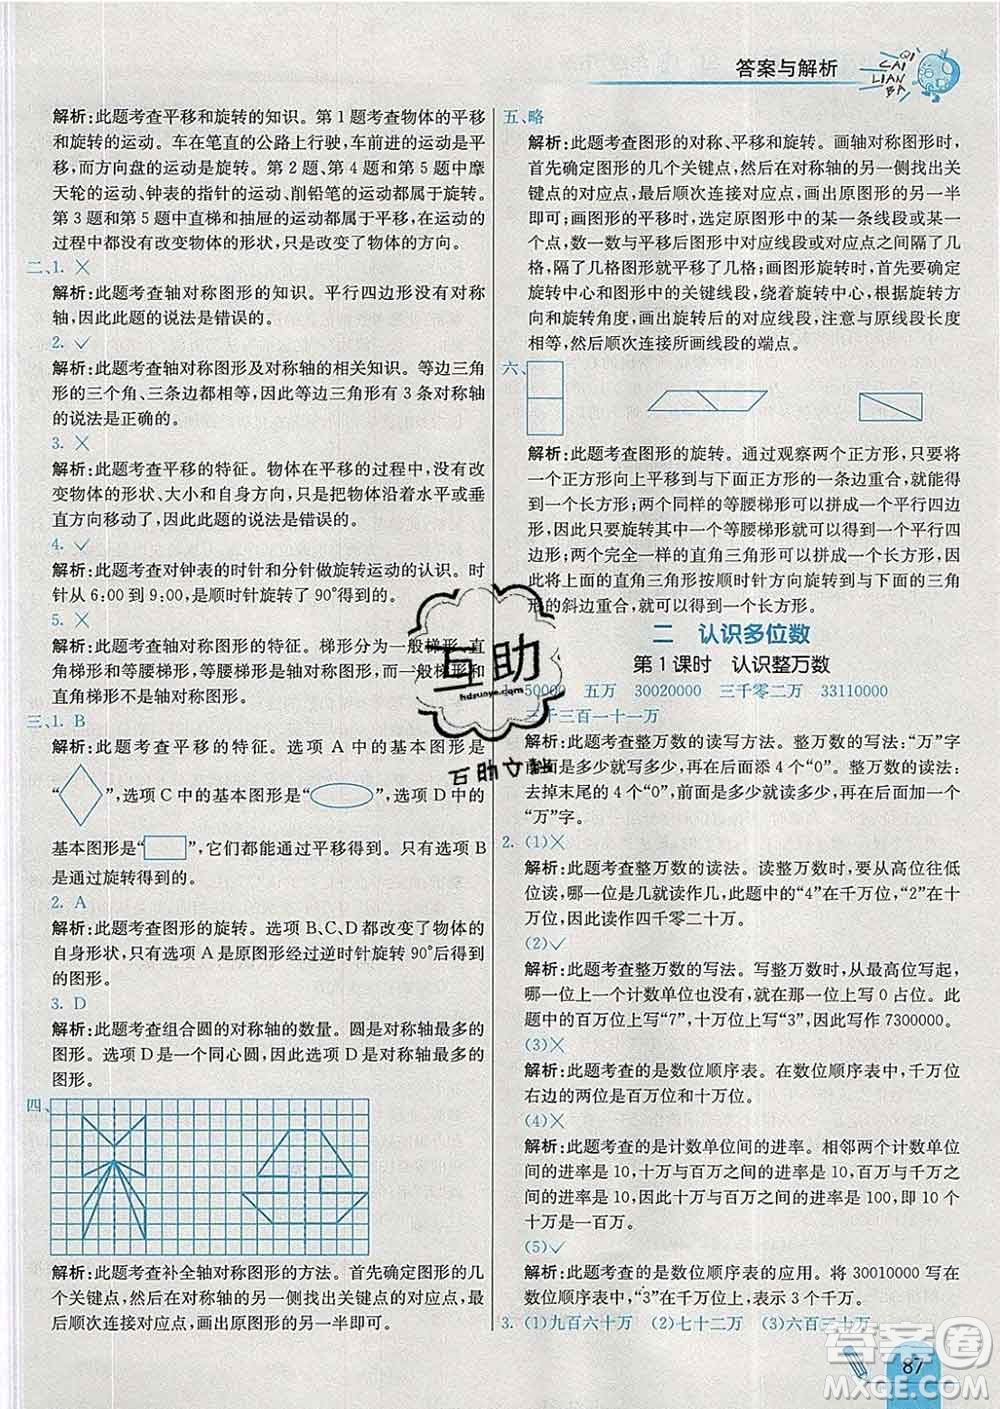 答案与解析
QI
CAI
LIAN
BA
解析:此题考查平移和旋转的知识。第1题考查物体的平移
和旋转的运动。车在笔直的公路上行驶,车前进的运动是平
移,而方向盘的运动是旋转。第2题、第4题和第5题中摩
天轮的运动、钟表的指针的运动、削铅笔的运动都属于旋转。
第3题和第5题中直梯和抽屉的运动都属于平移,在运动的
过程中都没有改变物体的形状,只是改变了物体的方向。
二、1. ×
解析:此题考查轴对称图形的知识。平行四边形没有对称
轴,因此此题的说法是错误的。
2. ✓
解析:此题考查轴对称图形及对称轴的相关知识。等边三角
形的三个角、三条边都相等,因此等边三角形有3条对称轴
的说法是正确的。
3. ×
解析:此题考查平移的特征。物体在平移的过程中,没有改
变物体的形状、大小和自身方向,只是物体沿着水平方向或
垂直方向移动了,因此此题的说法是错误的。
4. ✓
解析:此题考查对钟表的时针和分针做旋转运动的认识。时
针从6:00到9:00,时针旋转了90°是正确的。
5. ×
解析:此题考查轴对称图形的特征。梯形分为一般梯形、直
角梯形和等腰梯形,等腰梯形是轴对称图形,一般梯形和直
角梯形不是轴对称图形。
三、1. B
解析:此题考查平移的特征。选项A中的基本图形是
“ ”,选项C中的基本图形是“ ”,选项D中的
基本图形是“ ”,它们都能通过平移得到。只有选项B
是通过旋转得到的。
2. A
解析:此题考查图形的旋转。选项B、C、D都改变了物体的
自身形状。只有选项A是原图形经过逆时针旋转90°后得到
的图形。
3. D
解析:此题考查组合圆的对称轴的数量。圆是对称轴最多的
图形。选项D是一个同心圆,因此选项D是对称轴最多的
图形。
四、
解析:此题考查补全轴对称图形的方法。首先确定图形的几
个关键点,然后在对称轴的另一侧找出关键点的对应点,最
后顺次连接对应点,画出原图形的另一半即可。
五、略
解析:此题考查图形的对称、平移和旋转。画轴对称图形时,
首先确定图形的几个关键点,然后在对称轴的另一侧找出关
键点的对应点,最后顺次连接对应点,画出原图形的另一半
即可;画图形的平移时,选定原图形中的某一条线段或某一
个点,数一数与平移后图形中对应线段或对应点间隔了几
格,隔了几格图形就平移了几格;画图形旋转时,首先要确定
旋转中心和图形中的关键线段,绕着旋转中心,根据旋转方
向和旋转角度,画出旋转后的对应线段,注意与原线段长度
相等,然后顺次连接所画线段的端点。
六、
解析:此题考查图形的旋转。通过观察两个正方形,只要将
一个正方形向上平移到与另一个正方形的一条边重合,就能
得到一个长方形;两个同样的等腰梯形可以拼成一个平行四
边形,因此只要旋转其中一个等腰梯形就可以得到一个平行
四边形;两个完全一样的直角三角形可以拼成一个长方形,
因此将上面的直角三角形按顺时针方向旋转到与下面三角
形的斜边重合,就可以得到一个长方形。
二 认识多位数
第1课时 认识整万数
1. 50000 五万 30020000 三千零二万 33110000
三千三百一十一万
解析:此题考查整万数的读写方法。整万数的写法:“万”字
前面是多少就写多少,再在后面添4个“0”。整万数的读法:
去掉末尾的4个“0”,前面是多少就读多少,然后加一个
“万”字。
2. (1)×
解析:此题考查整万数的读法。读整万数时,从高位往低
位读,是几就读作几,此题中的“4”在千万位,“2”在十万
位,因此读作四千零二十万。
(2)✓
解析:此题考查整万数的写法。写整万数时,从高位写起,
哪一位上一个计数单位也没有,就在那一位上写0占位。此
题中的百万位上写“7”,十万位上写“3”,因此写作7300000。
(3)×
解析:此题考查的是数位顺序表。在数位顺序表中,千万位
右边的两位是百万位和十万位。
(4)×
解析:此题考查的是计数单位间的进率。相邻两个计数单位
间的进率是10,十万与百万之间的进率是10,百万与千万之
间的进率是10,因此十万与千万之间的进率是100,即10个
十万是一百万。
(5)✓
解析:此题考查的是数位顺序表的应用。将30010000写在
数位顺序表中,“3”在千万位上,表示3个千万。
3. (1)九百六十万 (2)七十二万 (3)六百三十万
87
互助
hdzuoye.com
互助文科
答案圈
MXQE.COM